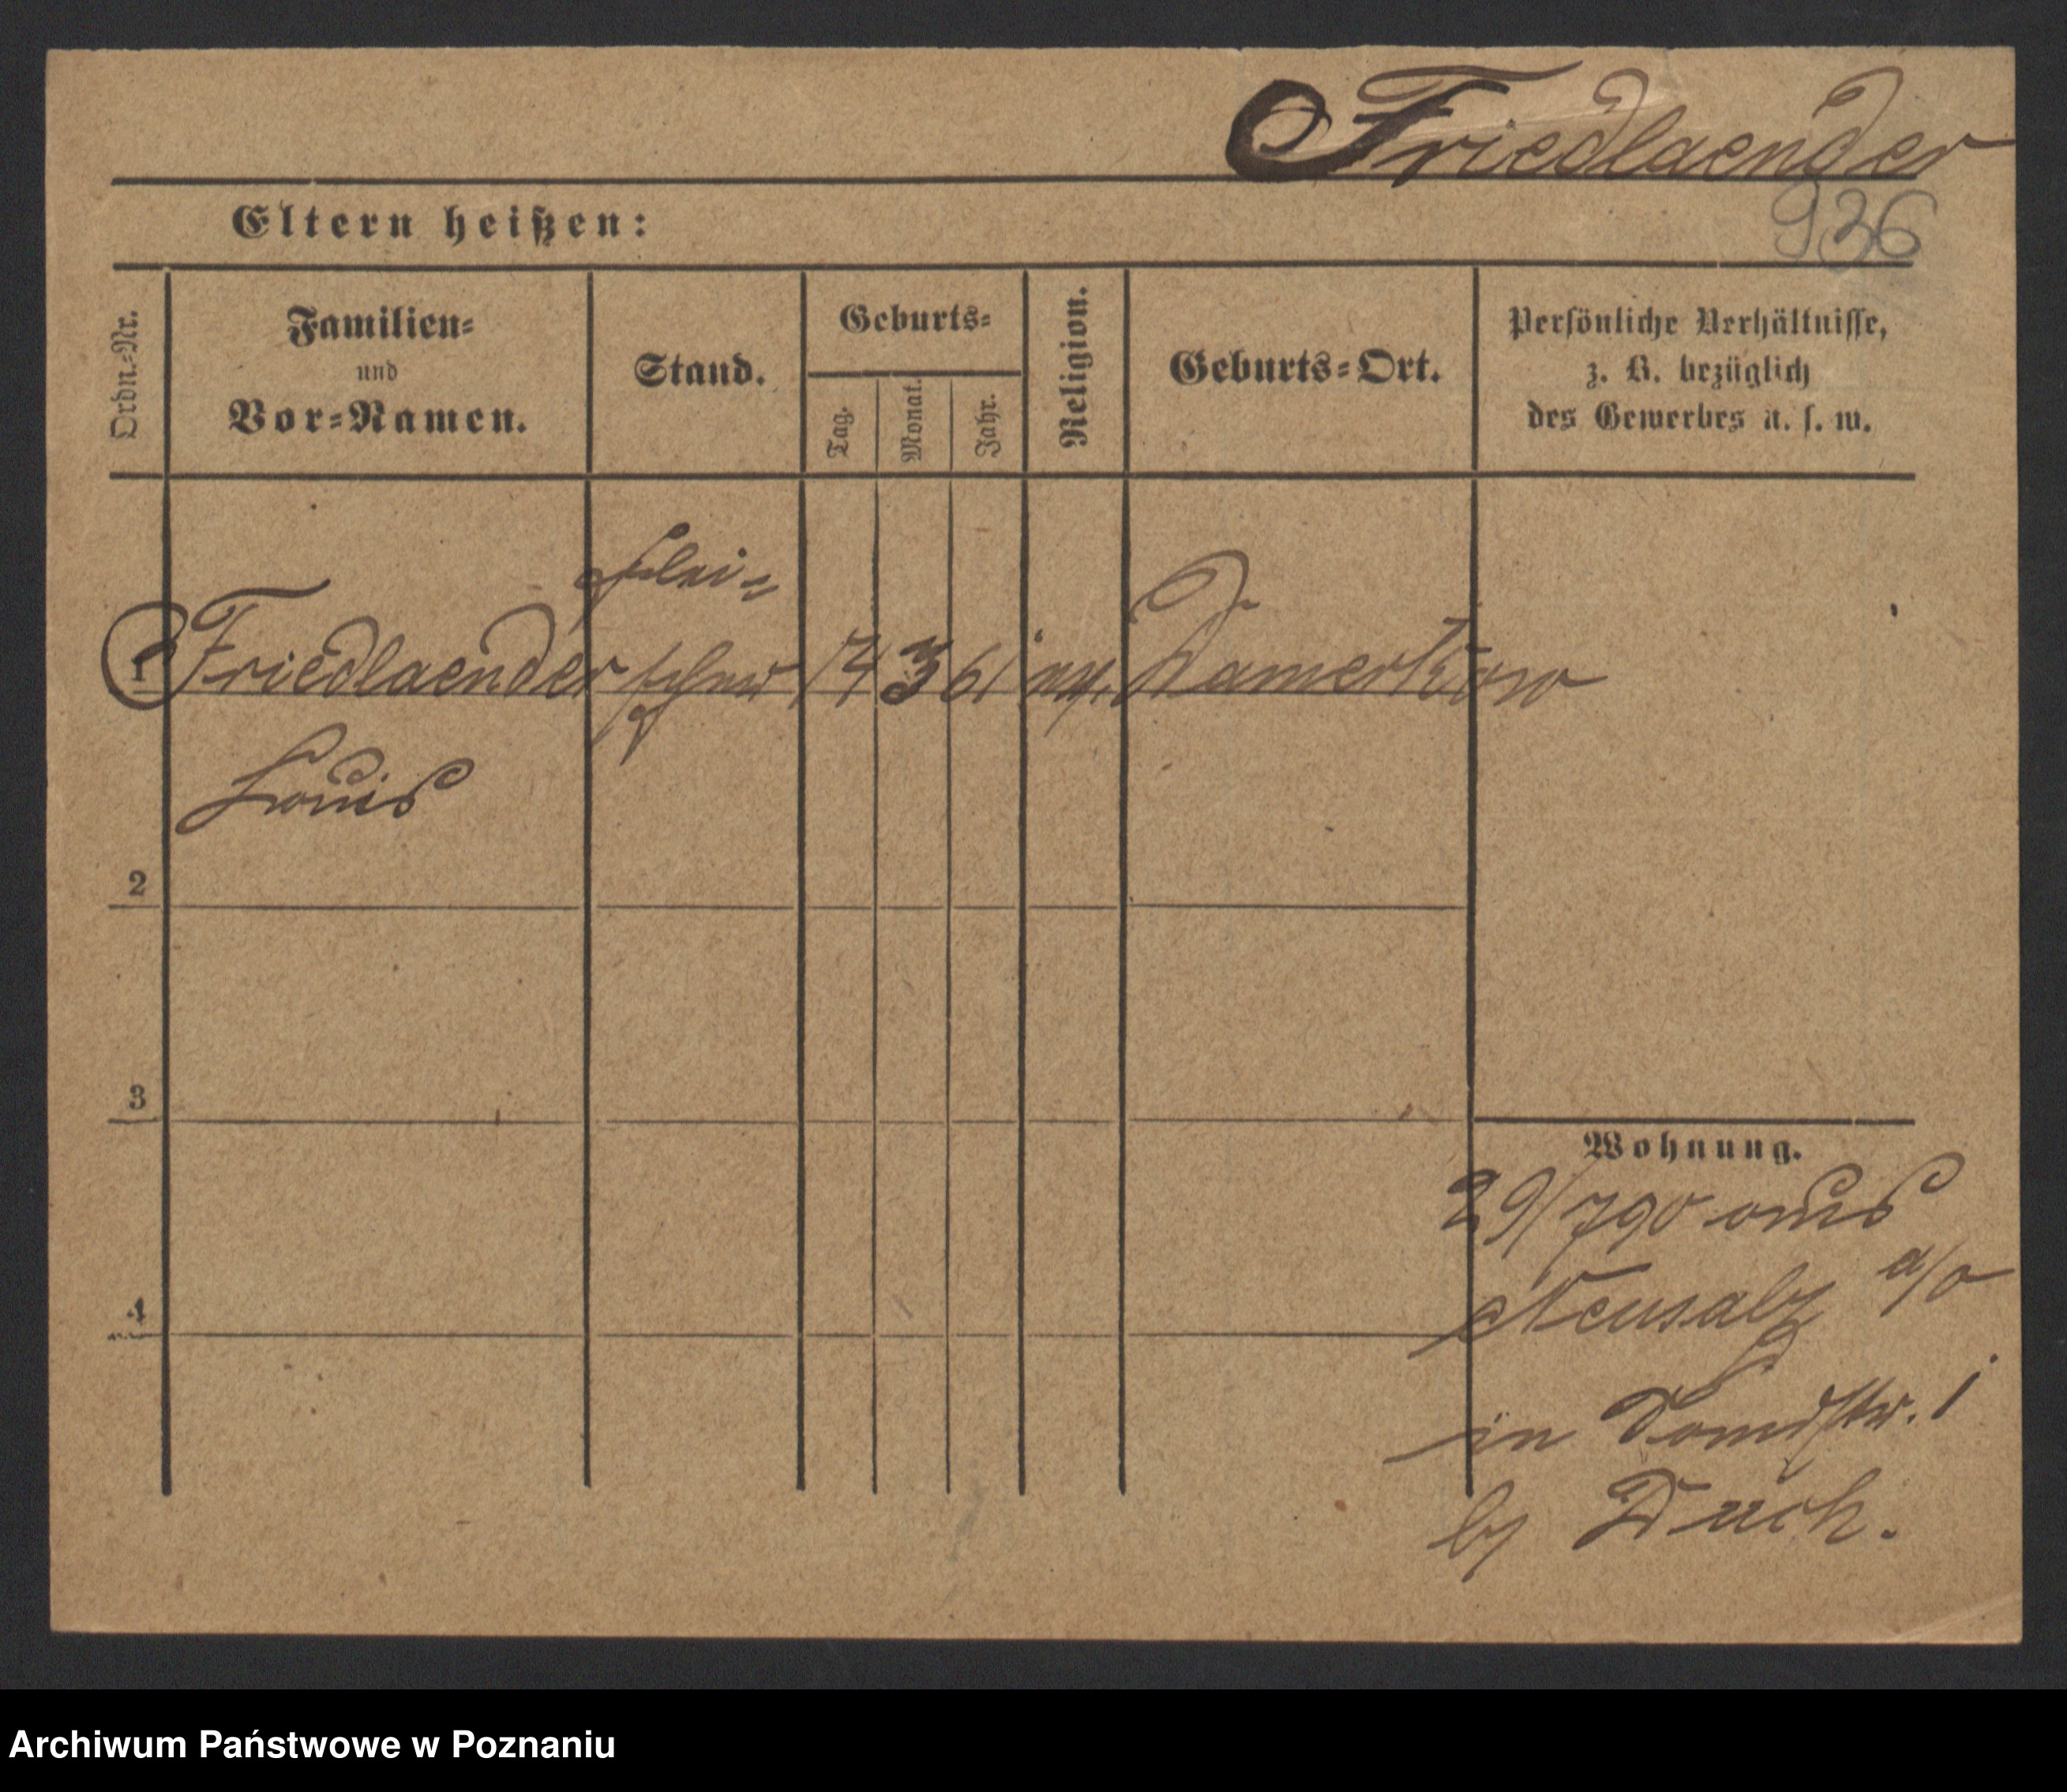 Friedlaender
936
Eltern heißen:
Ordn.-Nr.
Familien-
und
Vor-Namen.
Stand.
Geburts-
Tag.
Monat.
Jahr.
Religion.
Geburts-Ort.
Persönliche Verhältnisse,
z. B. bezüglich
des Gewerbes u. s. w.
Flei-
1 Friedlaender scher 14 3 61 Damerkow
Louis
2
3
4
Wohnung.
29/7 90 aus
Neusalz a/O
in
b/
Archiwum Państwowe w Poznaniu